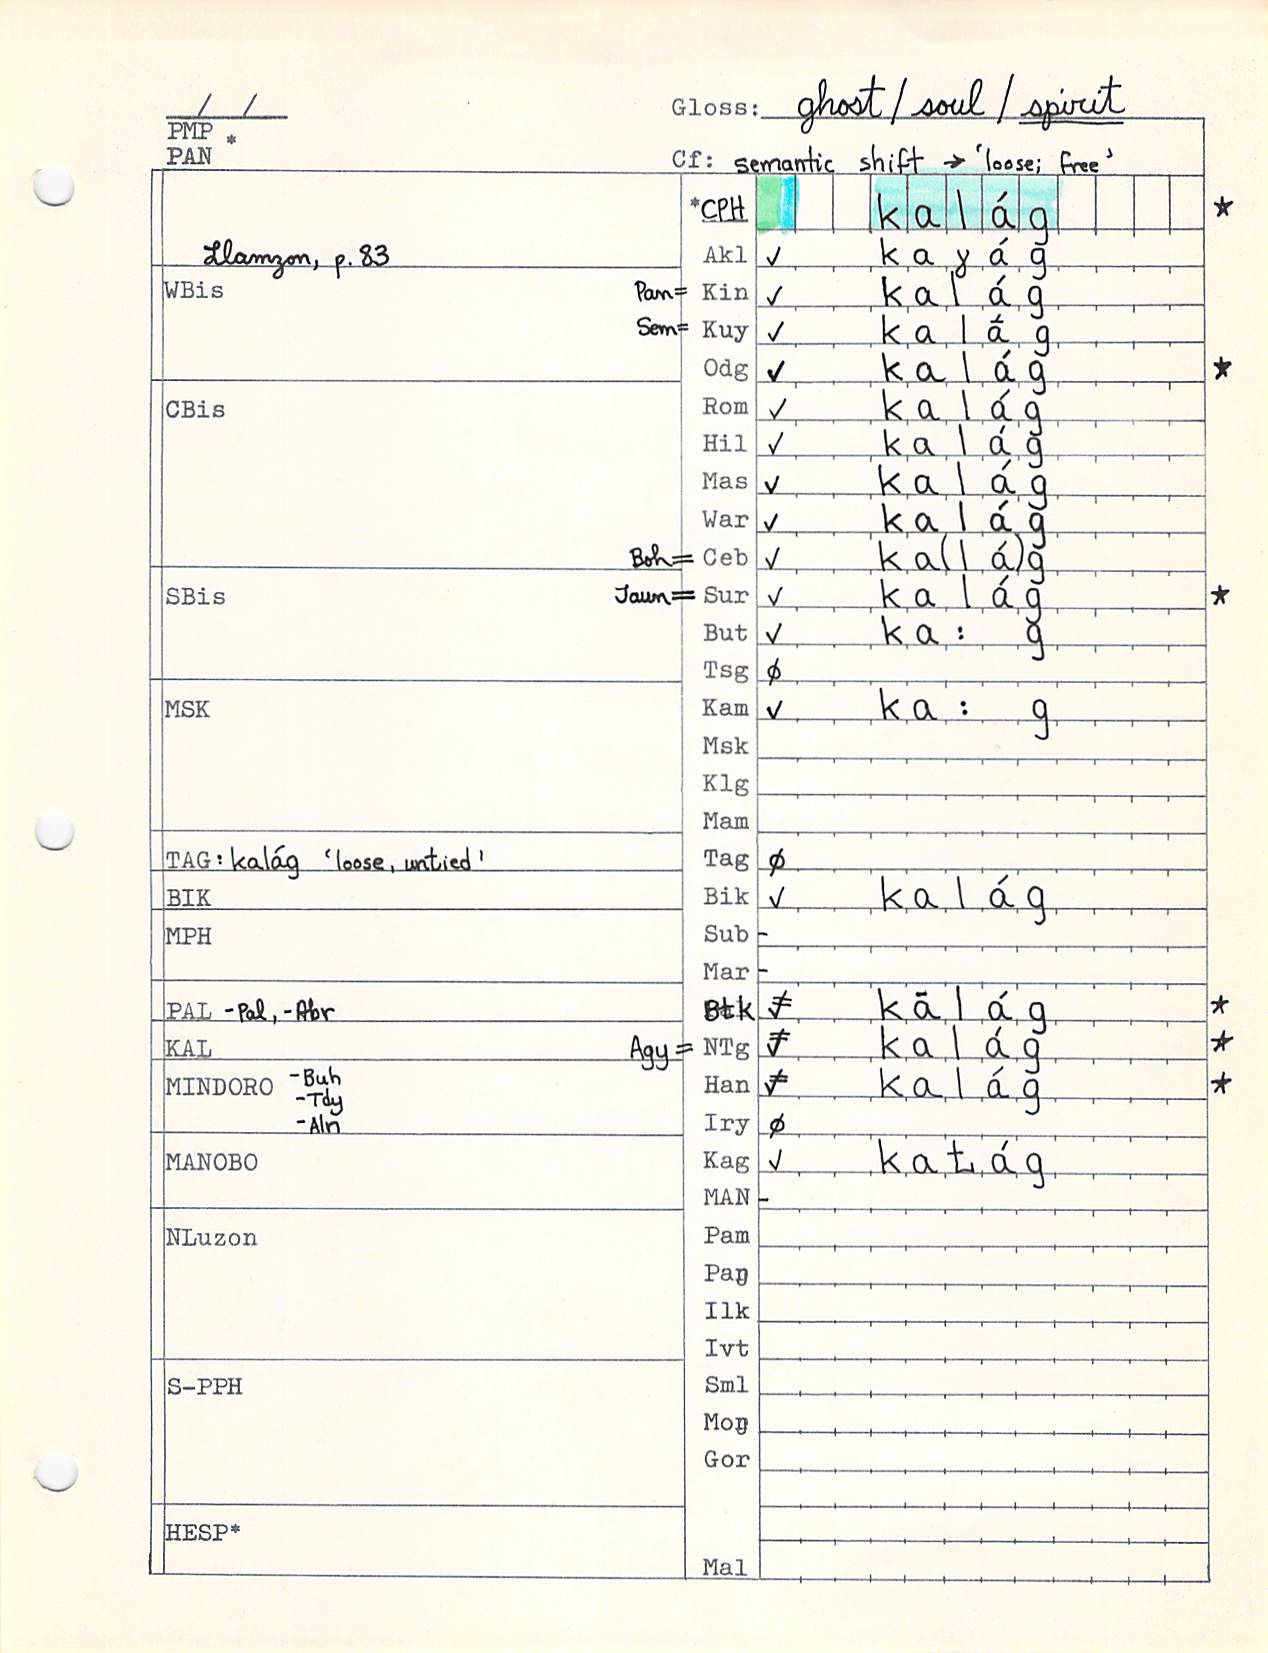 / /
Gloss: ghost / soul / spirit
PMP *
PAN
Cf: semantic shift → ‘loose; free’
*CPH kalág ★
Llamzon, p. 83
Akl ✓ kaɣág
WBis
Pan= Kin ✓ kalág
Sem= Kuy ✓ kalág
Odg ✓ kalág ★
CBis
Rom ✓ kalág
Hil ✓ kalág
Mas ✓ kalág
War ✓ kalág
Boh= Ceb ✓ ka(lá)g
SBis
Jaun= Sur ✓ kalág ★
But ✓ ka: g
Tsg ∅
MSK
Kam ✓ ka: g
Msk
Klg
Mam
TAG: kalág ‘loose, untied’
Tag ∅
BIK
Bik ✓ kalág
MPH
Sub -
Mar -
PAL -Pal, -Abr
Btk ≠ kālág ★
KAL
Agy= NTg ≠ kalág ★
MINDORO -Buh
-Tdy
-Aln
Han ≠ kalág ★
Iry ∅
MANOBO
Kag ✓ kaŧág
MAN -
NLuzon
Pam
Paŋ
Ilk
Ivt
S-PPH
Sml
Moŋ
Gor
HESP*
Mal